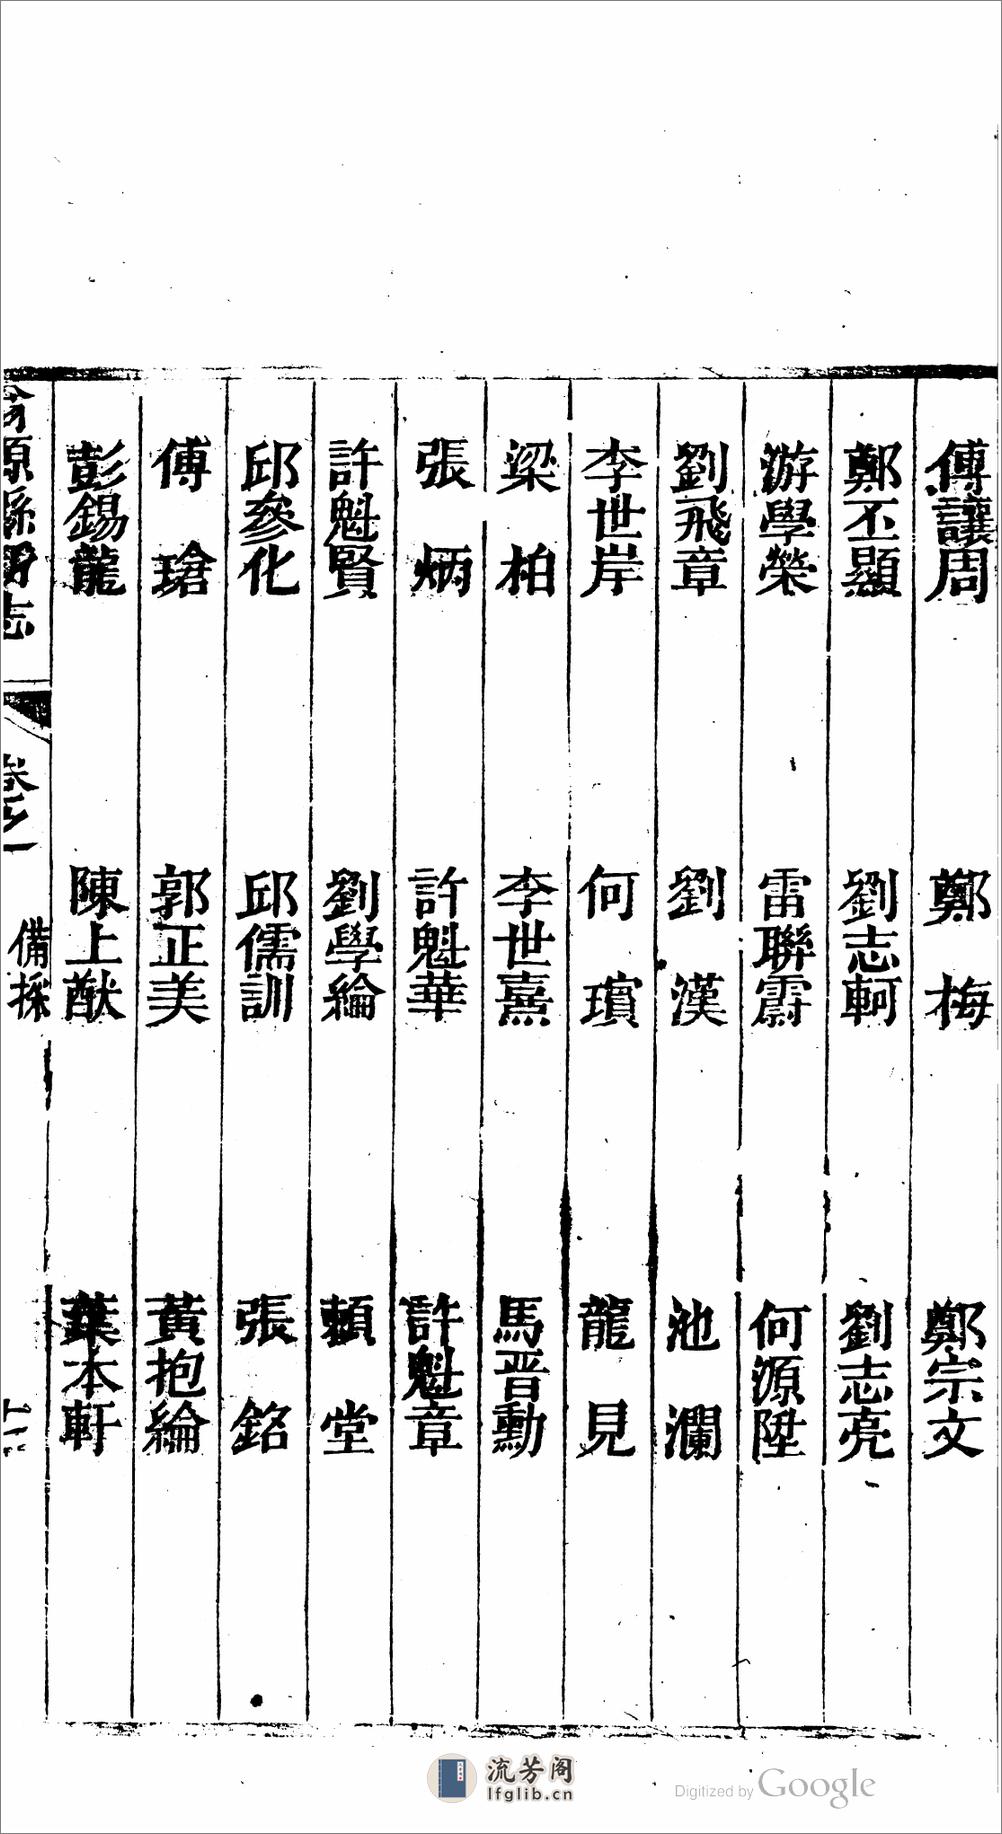 傅讓周　鄭梅　鄭宗文
鄭丕顯　劉志軻　劉志亮
游學榮　雷聯霨　何源陞
劉飛章　劉漢　池瀾
李世岸　何璸　龍見
梁柏　李世熹　馬晋勳
張炳　許魁華　許魁章
許魁賢　劉學綸　賴堂
邱參化　邱儒訓　張銘
傅瑲　郭正美　黃抱綸
彭錫龍　陳上猷　葉本軒
翁源縣新志　卷之一　備採
流芳阁
lfglib.cn
Digitized by Google